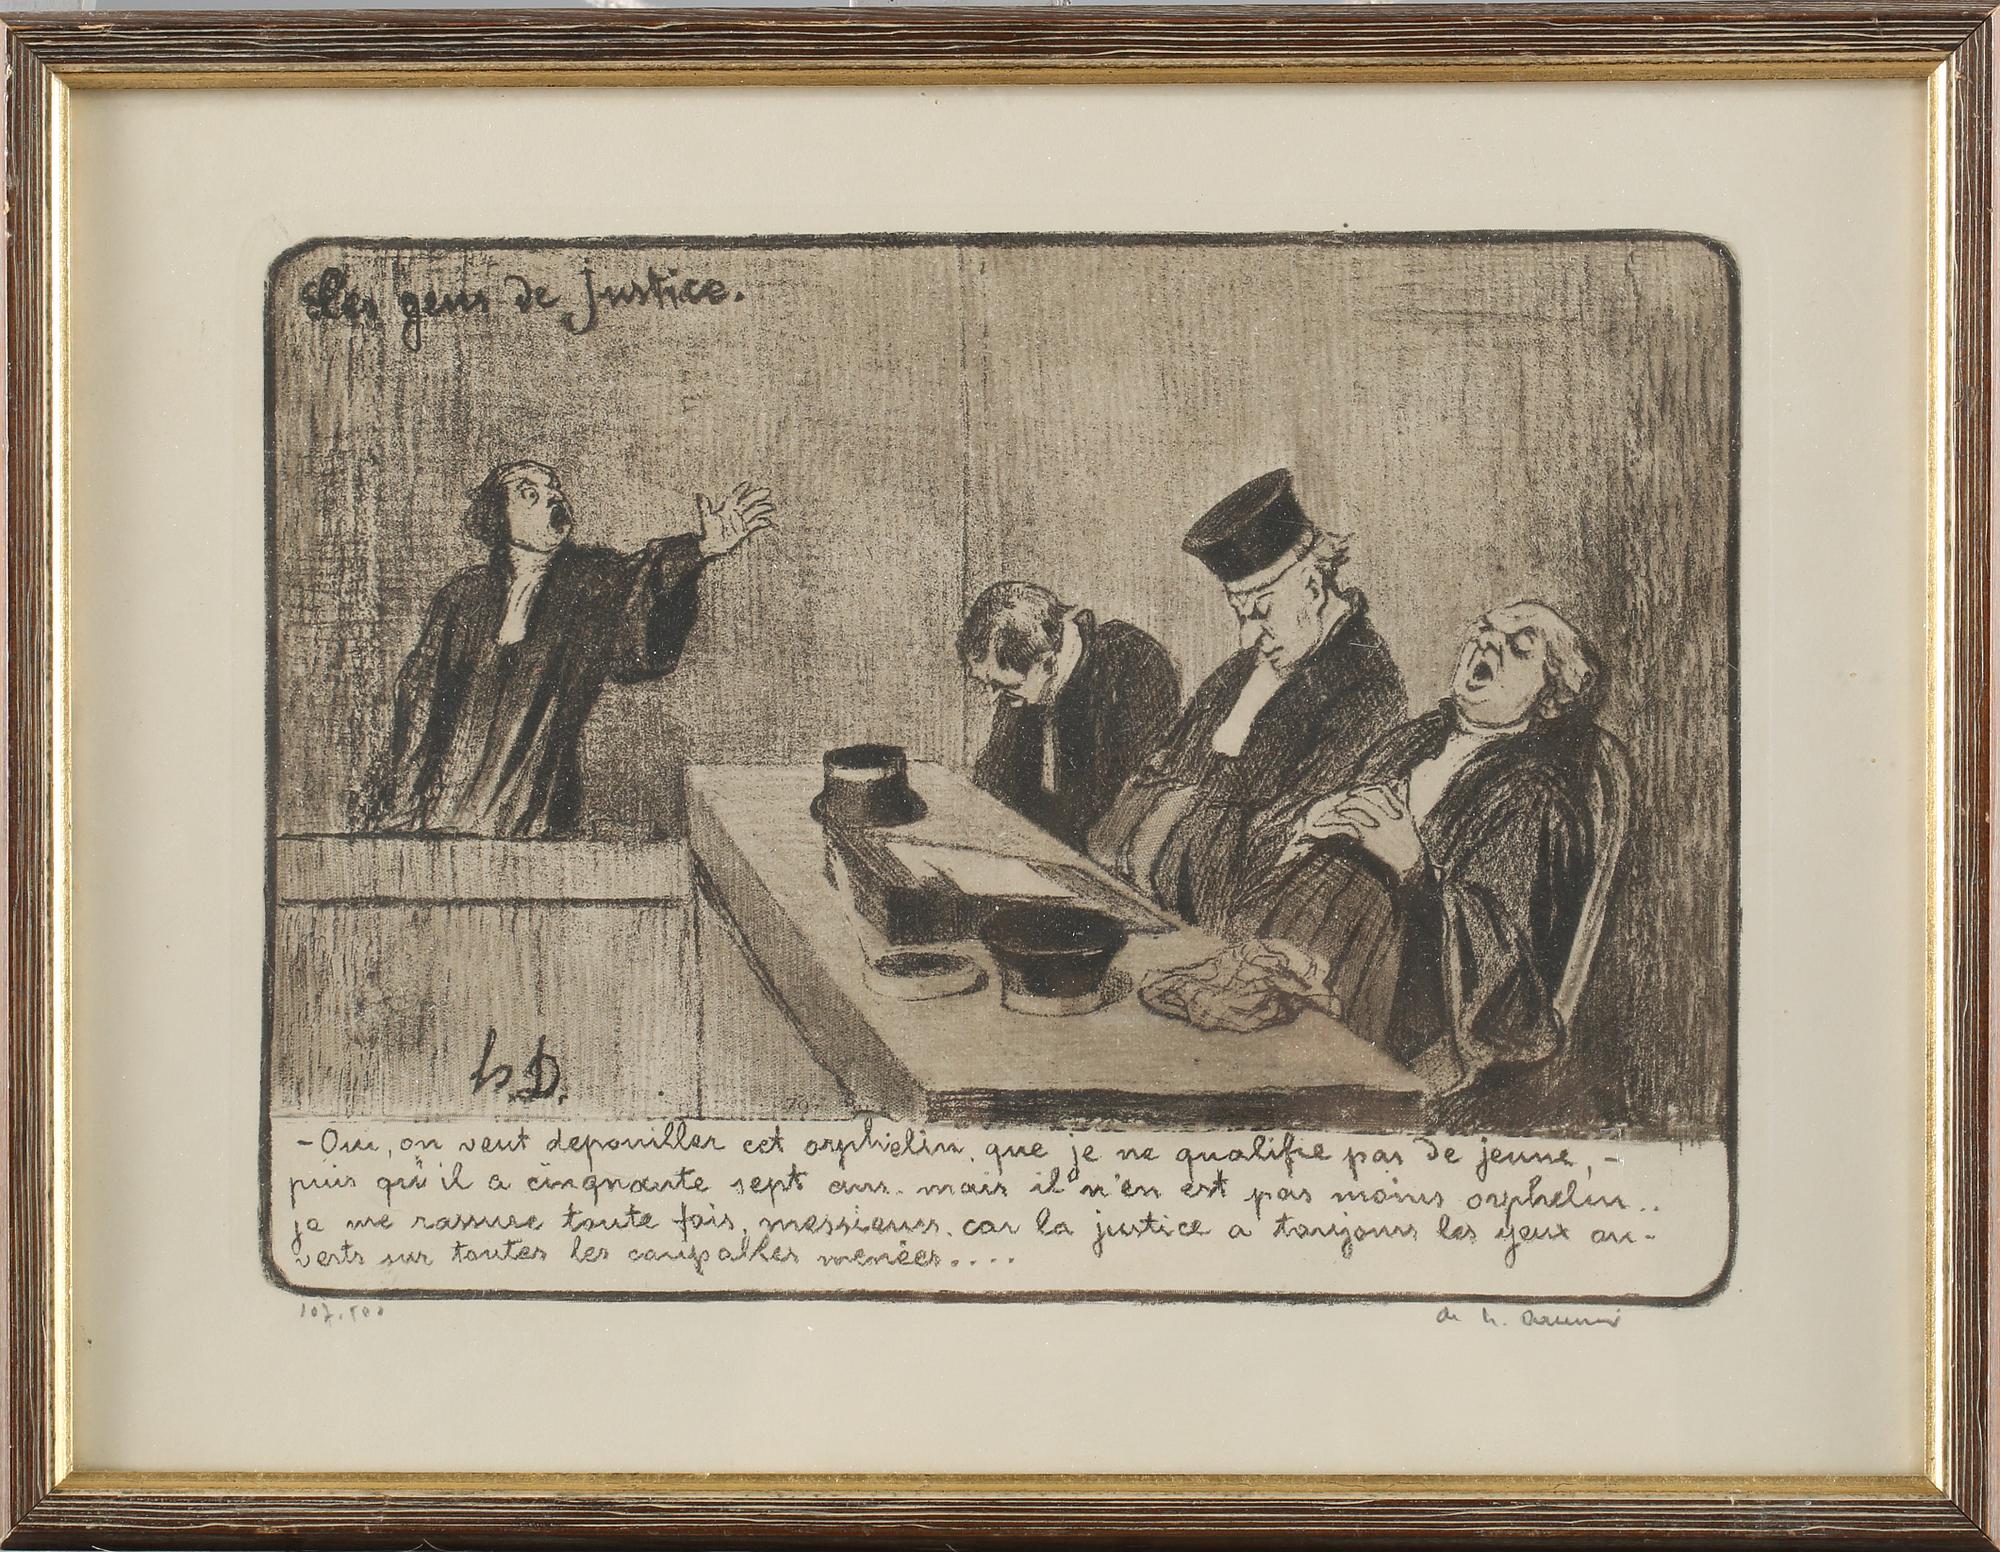 Les gens de Justice.
h.D.
- Oui, on veut depouiller cet orphelin, que je ne qualifie pas de jeune, -
puis qu'il a cinquante sept ans. mais il n'en est pas moins orphelin..
je me rassure toute fois, messieurs, car la justice a toujours les yeux ou-
verts sur toutes les coupables menées....
107.500